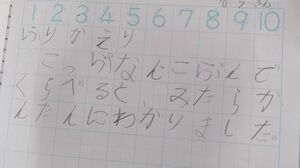 1 2 3 4 5 6 7 8 9 10
ふりかえり
こっぷなんこぶんで
くらべると、みたらか
んたんにわかりました。